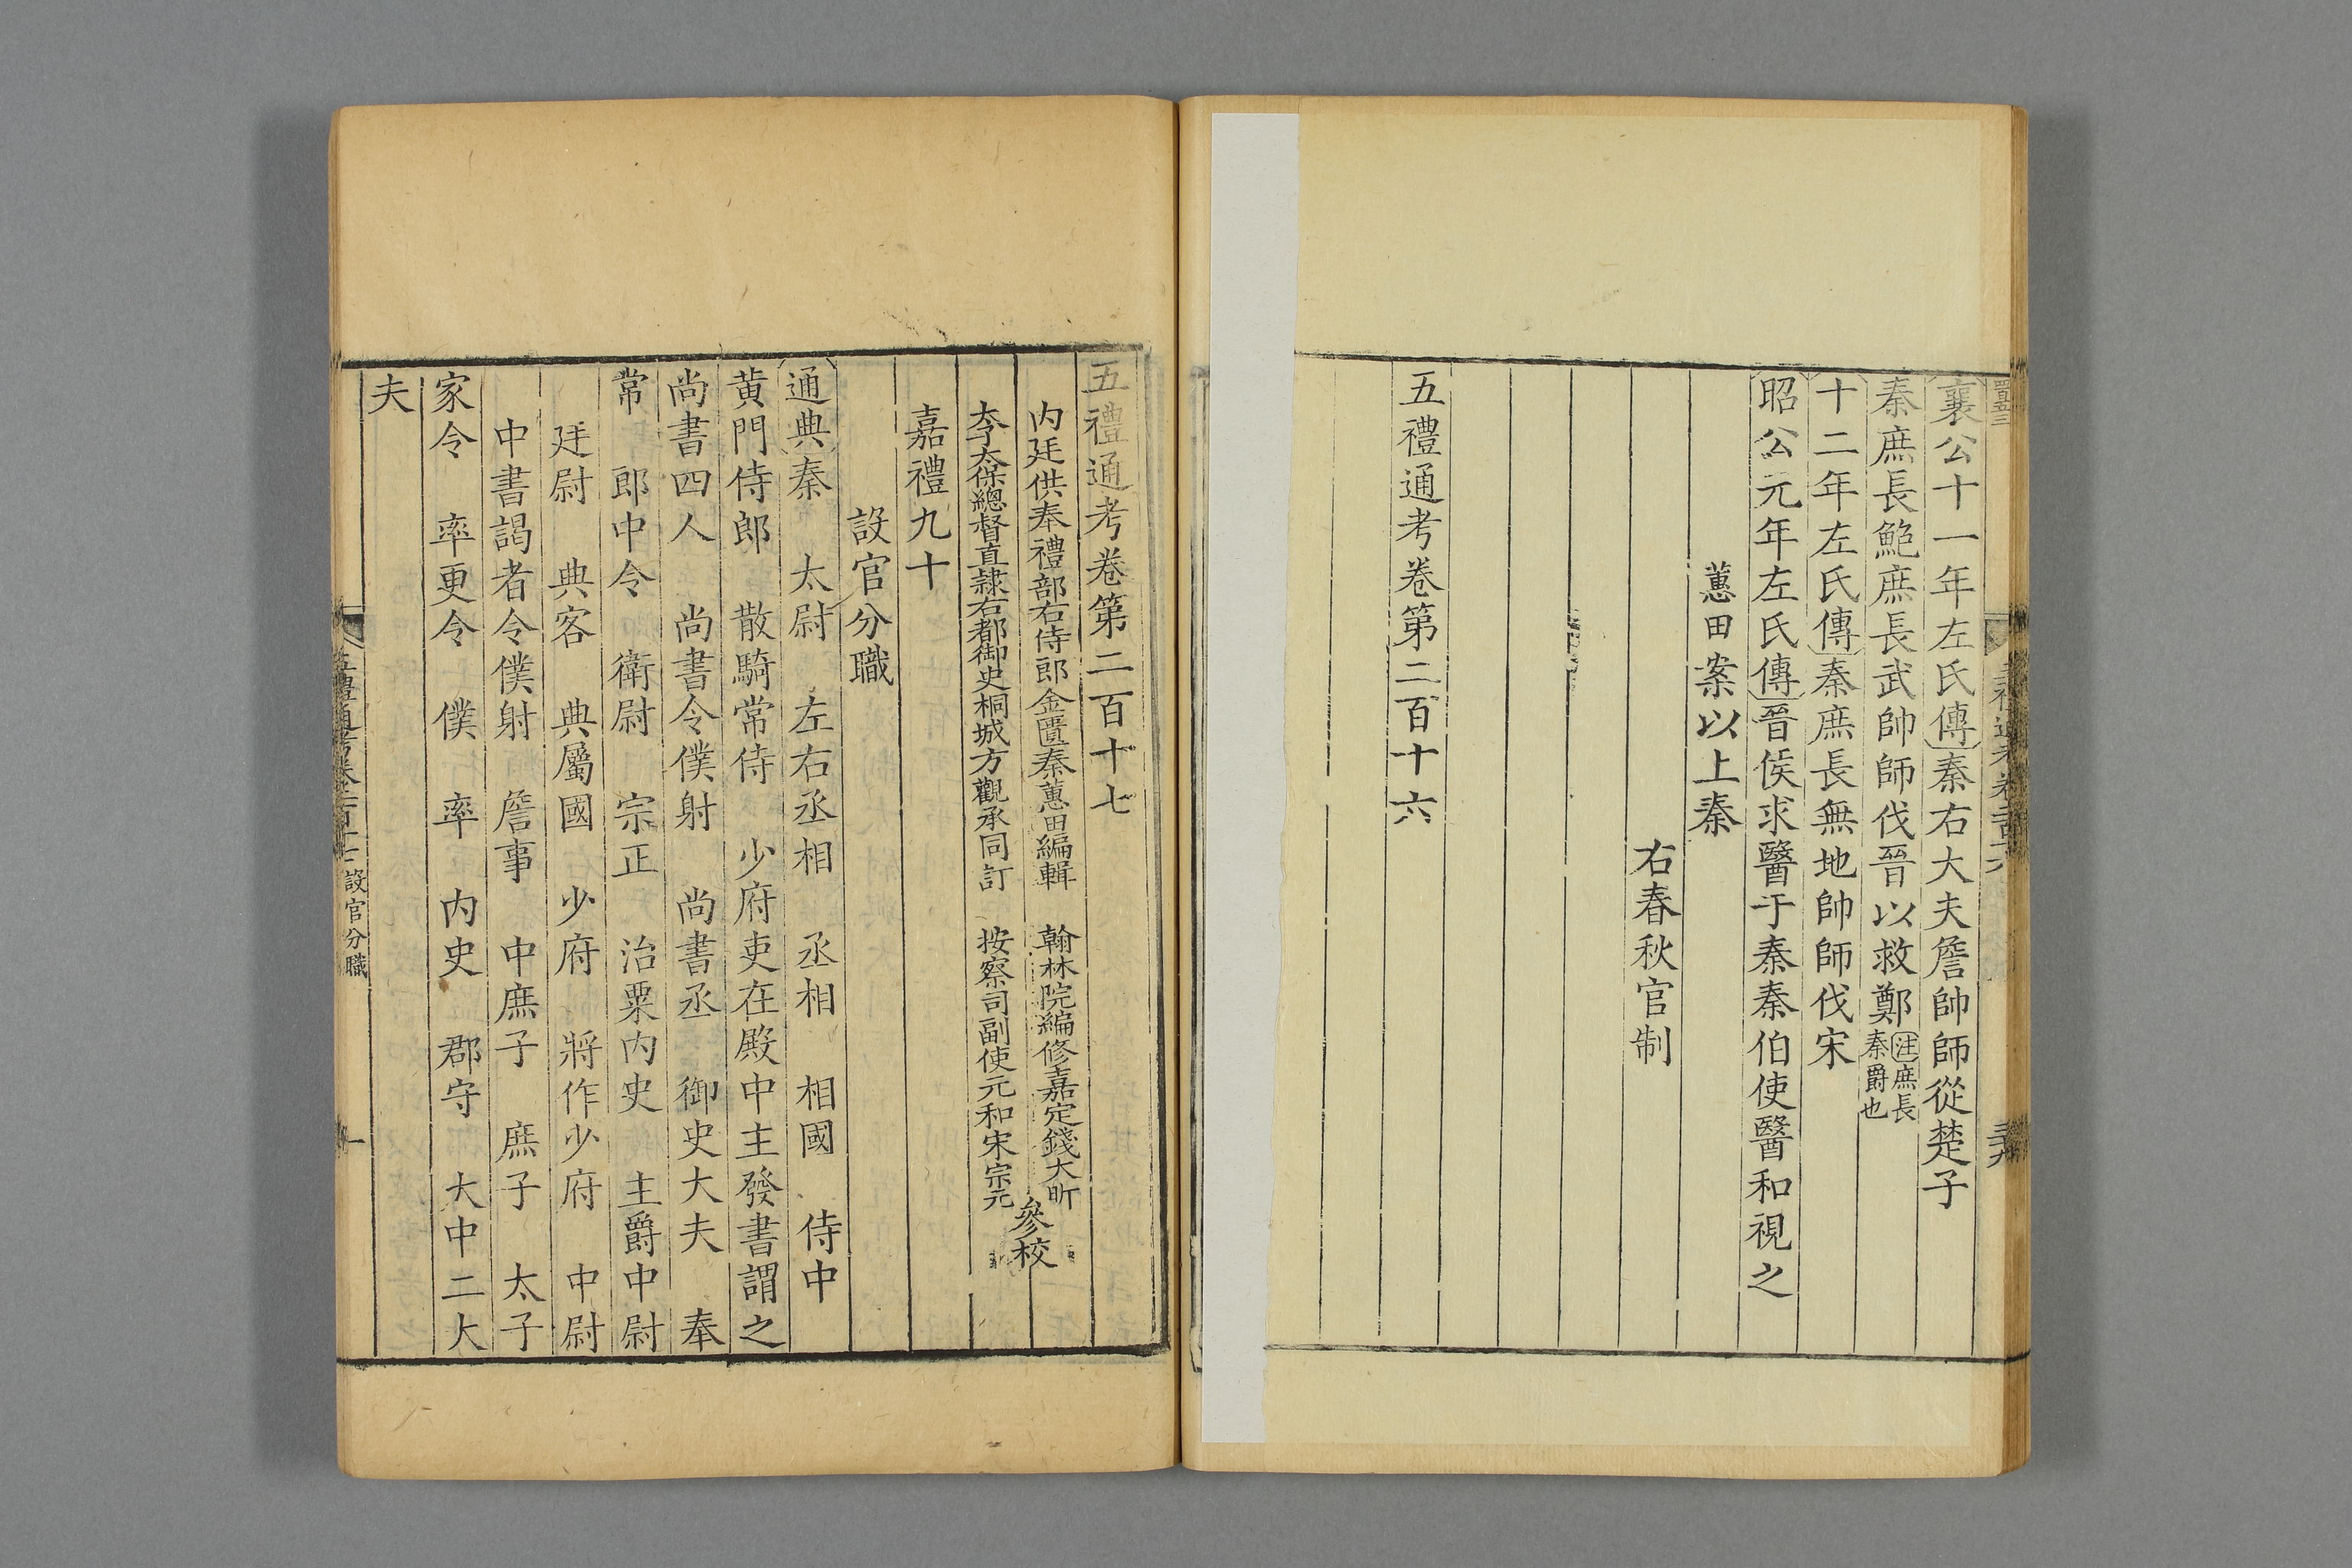 襄公十一年左氏傳秦右大夫詹帥師從楚子
秦庶長鮑庶長武帥師伐晉以救鄭注庶長秦爵也
十二年左氏傳秦庶長無地帥師伐宋
昭公元年左氏傳晉侯求醫于秦秦伯使醫和視之
蕙田案以上秦
右春秋官制
五禮通考卷第二百十六
五禮通考卷第二百十七
内廷供奉禮部右侍郎金匱秦蕙田編輯 翰林院編修嘉定錢大昕
太子太保總督直隸右都御史桐城方觀承同訂 按察司副使元和宋宗元
參校
嘉禮九十
設官分職
通典秦 太尉 左右丞相 丞相 相國 侍中
黄門侍郎 散騎常侍 少府吏在殿中主發書謂之
尚書四人 尚書令僕射 尚書丞 御史大夫 奉
常 郎中令 衛尉 宗正 治粟内史 主爵中尉
廷尉 典客 典屬國 少府 將作少府 中尉
中書謁者令僕射 詹事 中庶子 庶子 太子
家令 率更令 僕 率 内史 郡守 大中二大
夫
設官分職
一